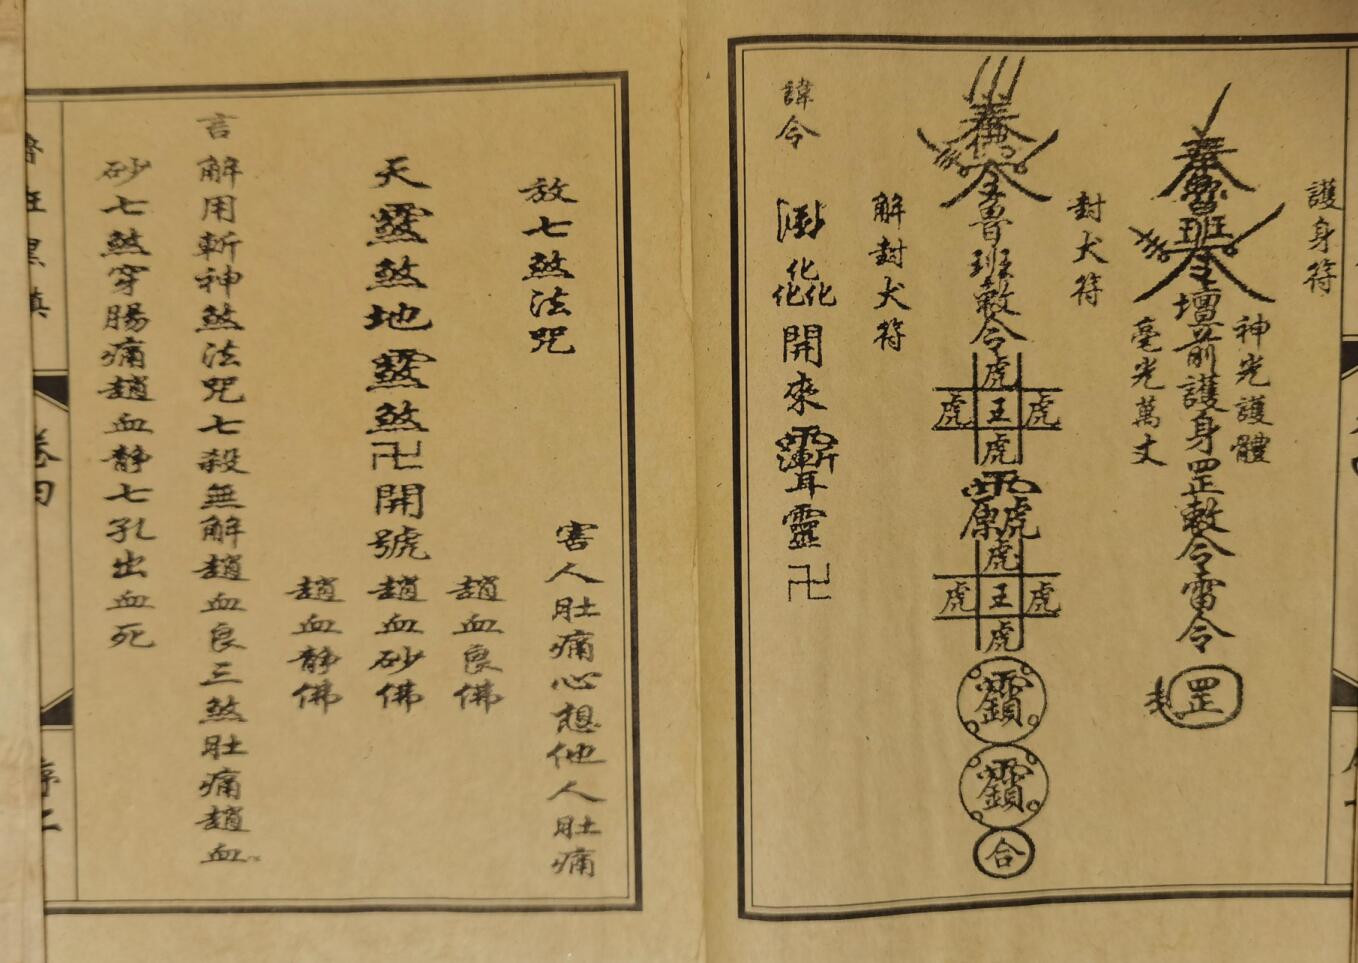 護身符
奉魯班令壇前護身罡敕令雷令
罡
神光護體
毫光萬丈
封犬符
奉佛令魯班敕令
虎
虎王虎
虎
虎
虎王虎
虎
合
解封犬符
諱令
化化化開來
靈卍
放七煞法咒
害人肚痛心想他人肚痛
天
煞地
煞卍開號
趙血良佛
趙血砂佛
趙血靜佛
言解用斬神煞法咒七殺無解趙血良三煞肚痛趙血
砂七煞穿腸痛趙血靜七孔出血死
卷四